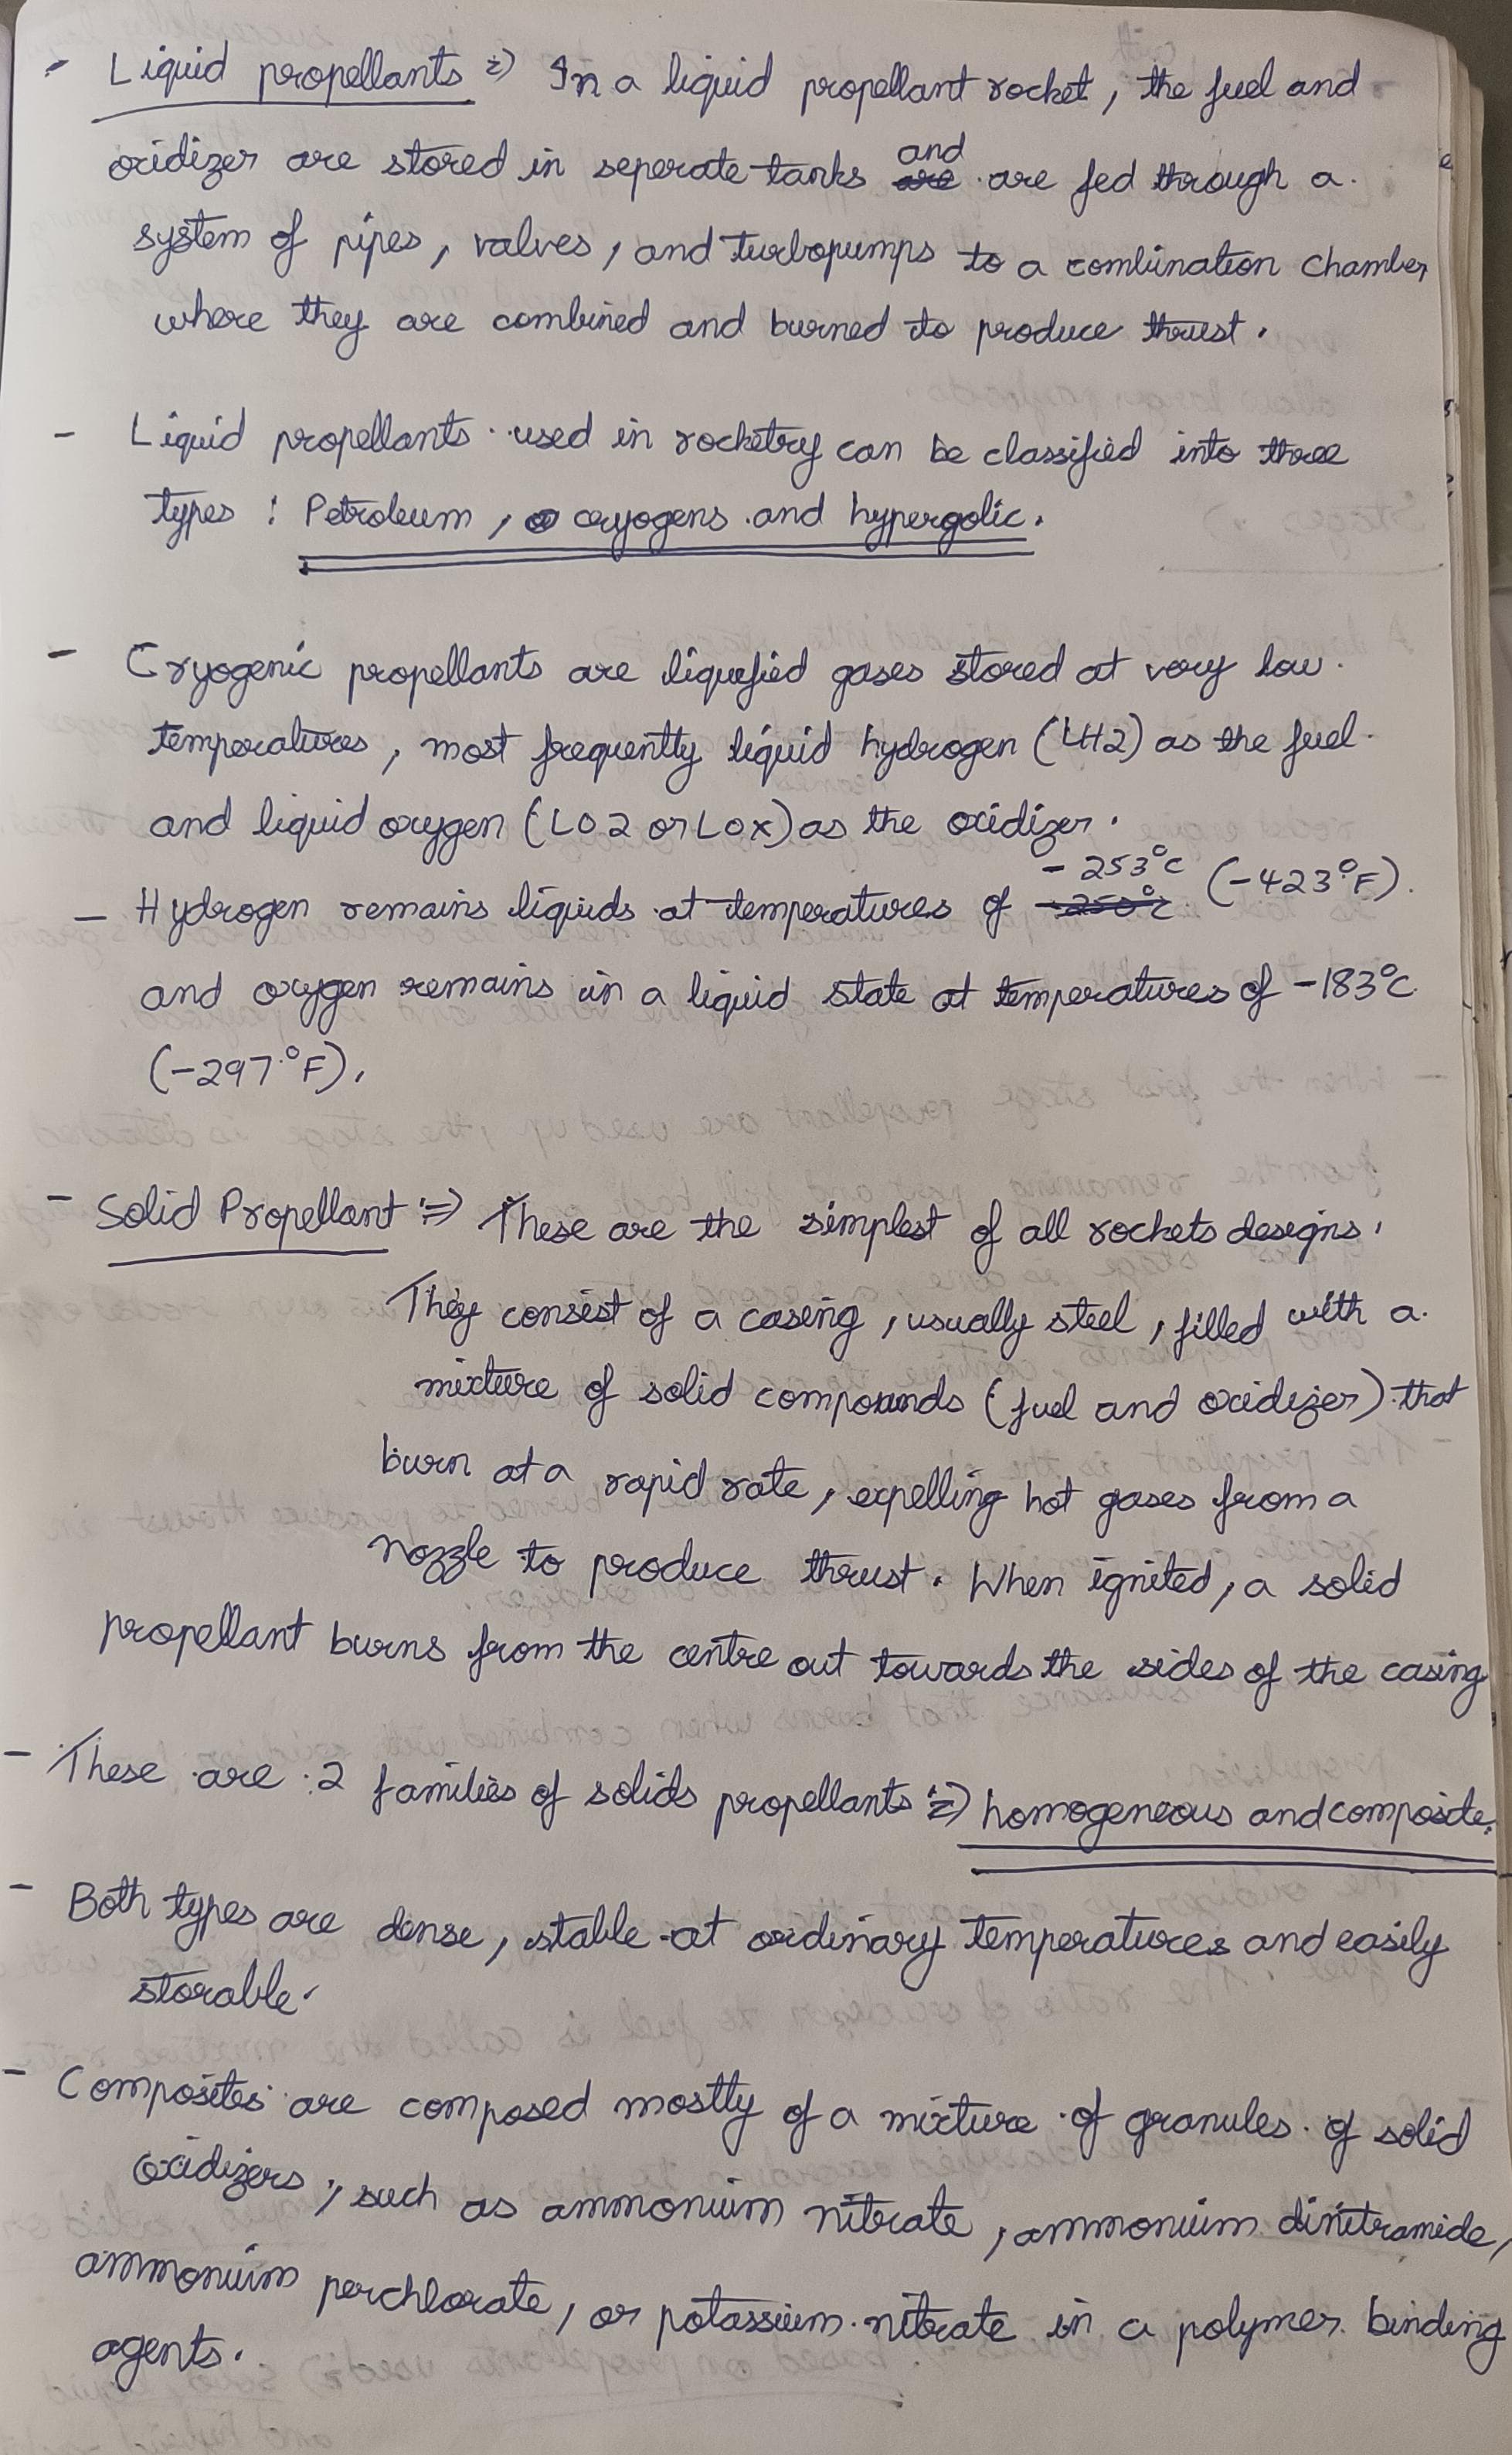 - Liquid propellants => In a liquid propellant rocket, the fuel and
oxidizer are stored in seperate tanks and are fed through a
system of pipes, valves, and turbopumps to a combination chamber
where they are combined and burned to produce thrust.
- Liquid propellants used in rocketry can be classified into three
types : Petroleum, cryogens and hypergolic.
- Cryogenic propellants are liquefied gases stored at very low
temperatures, most frequently liquid hydrogen (LH2) as the fuel
and liquid oxygen (LO2 or LOX) as the oxidizer.
- Hydrogen remains liquids at temperatures of -253°C (-423°F).
and oxygen remains in a liquid state at temperatures of -183°C
(-297°F).
- Solid Propellant :=> These are the simplest of all rockets designs.
They consist of a casing, usually steel, filled with a
mixture of solid compounds (fuel and oxidizer) that
burn at a rapid rate, expelling hot gases from a
nozzle to produce thrust. When ignited, a solid
propellant burns from the centre out towards the sides of the casing
- These are 2 families of solids propellants :=> homogeneous and composite.
- Both types are dense, stable at ordinary temperatures and easily
storable.
- Composites are composed mostly of a mixture of granules of solid
oxidizers, such as ammonium nitrate, ammonium dinitramide,
ammonium perchlorate, or potassium nitrate in a polymer binding
agents.